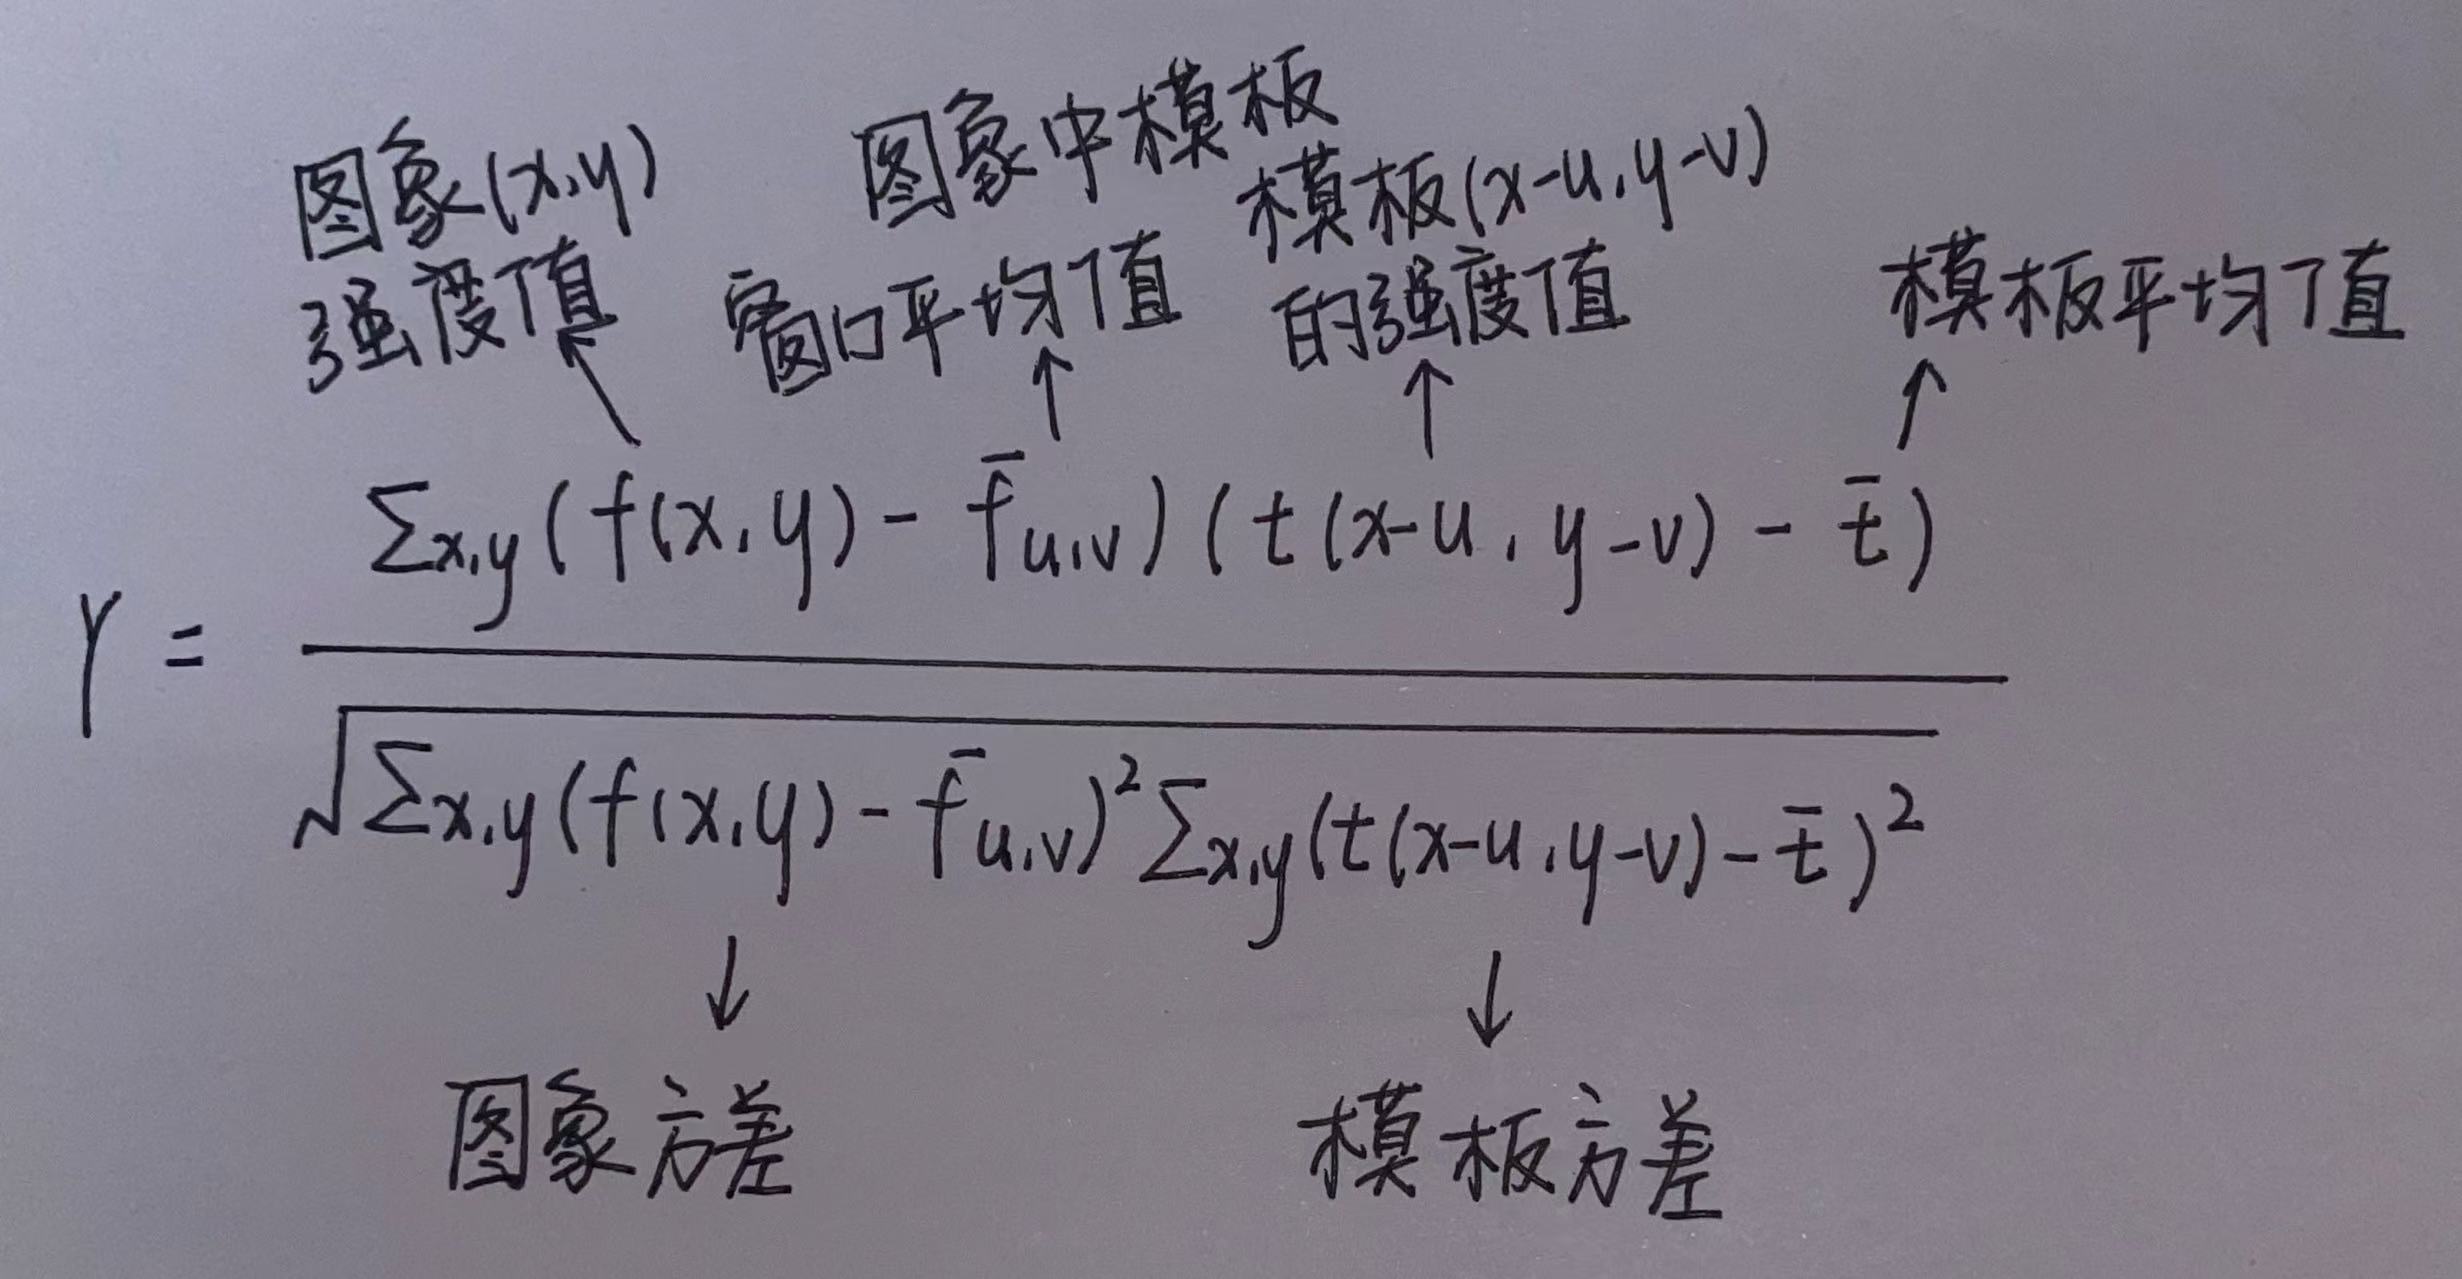 图象(x,y)
强度值
图象中模板
窗口平均值
模板(x-u,y-v)
的强度值
模板平均值
γ = \frac{Σ_{x,y}(f(x,y) - \bar{f}_{u,v})(t(x-u, y-v) - \bar{t})}{\sqrt{Σ_{x,y}(f(x,y) - \bar{f}_{u,v})^2 Σ_{x,y}(t(x-u,y-v) - \bar{t})^2}}
图象方差
模板方差